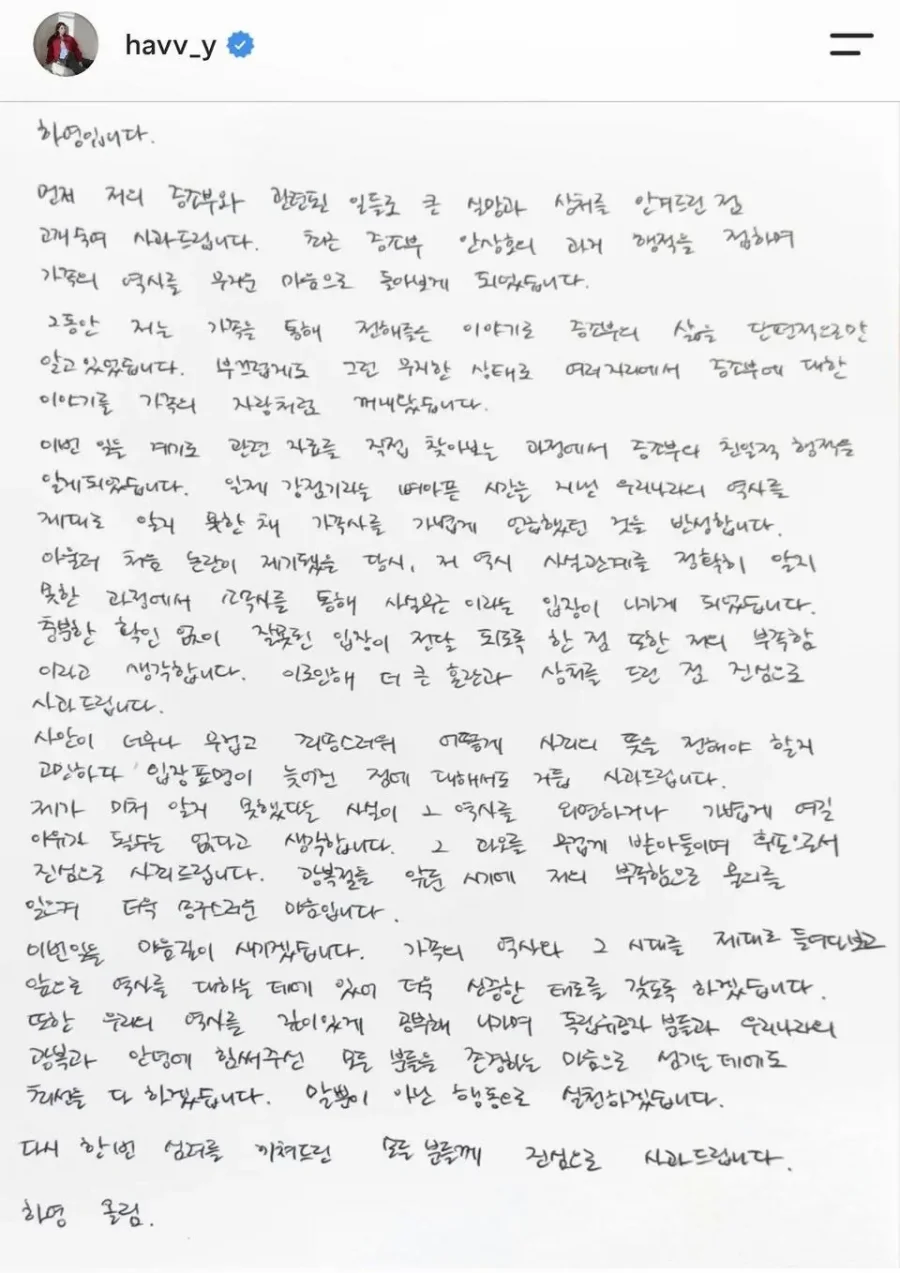 havv_y
하영입니다.
먼저 저의 증조부와 관련된 일들로 큰 실망과 상처를 안겨드린 점
고개숙여 사과드립니다. 최근 증조부 안상호의 과거 행적을 접하며
가족의 역사를 무거운 마음으로 돌아보게 되었습니다.
그동안 저는 가족을 통해 전해들은 이야기로 증조부의 삶을 단편적으로만
알고 있었습니다. 부끄럽게도 그런 무지한 상태로 여러 자리에서 증조부에 대한
이야기를 가족의 자랑처럼 꺼내왔습니다.
이번 일을 계기로 관련 자료를 직접 찾아보는 과정에서 증조부의 친일적 행적을
알게되었습니다. 일제 강점기라는 뼈아픈 시간을 지낸 우리나라의 역사를
제대로 알지 못한 채 가족사를 가볍게 언급했던 것을 반성합니다.
아울러 처음 논란이 제기됐을 당시, 저 역시 사실관계를 정확히 알지
못한 과정에서 소속사를 통해 사실무근이라는 입장이 나가게 되었습니다.
충분한 확인 없이 잘못된 입장이 전달 되도록 한 점 또한 저의 부족함
이라고 생각합니다. 이로인해 더 큰 혼란과 상처를 드린 점 진심으로
사과드립니다.
사안이 너무나 무겁고 죄송스러워 어떻게 사죄의 뜻을 전해야 할지
고민하다 입장표명이 늦어진 점에 대해서도 거듭 사과드립니다.
제가 미처 알지 못했다는 사실이 그 역사를 외면하거나 가볍게 여길
이유가 될수는 없다고 생각합니다. 그 과오를 무겁게 받아들이며 후손으로서
진심으로 사죄드립니다. 광복절을 앞둔 시기에 저의 부족함으로 물의를
일으켜 더욱 송구스러운 마음입니다.
이번일을 마음깊이 새기겠습니다. 가족의 역사와 그 시대를 제대로 들여다보고
앞으로 역사를 대하는 데에 있어 더욱 신중한 태도를 갖도록 하겠습니다.
또한 우리의 역사를 깊이있게 공부해 나가며 독립유공자 분들과 우리나라의
광복과 안녕에 힘써주신 모든 분들을 존경하는 마음으로 섬기는데에도
최선을 다 하겠습니다. 말뿐이 아닌 행동으로 실천하겠습니다.
다시 한번 심려를 끼쳐드린 모든 분들께 진심으로 사과드립니다.
하영 올림.